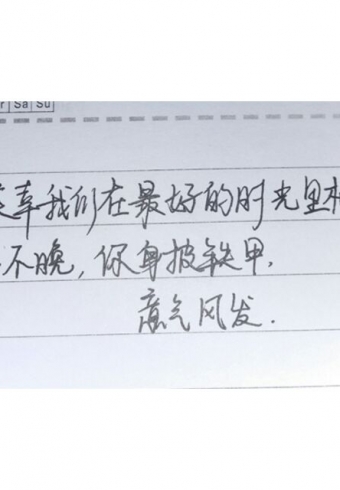 Sa Su
幸我们在最好的时光里
不晚,你身披铁甲.
意气风发.